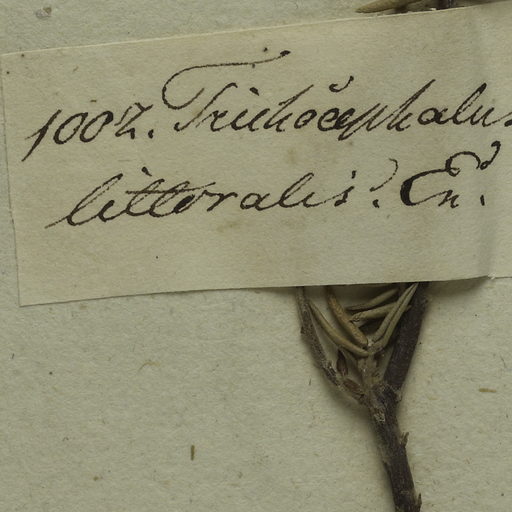 1002. Trichocephalus
littoralis. En.